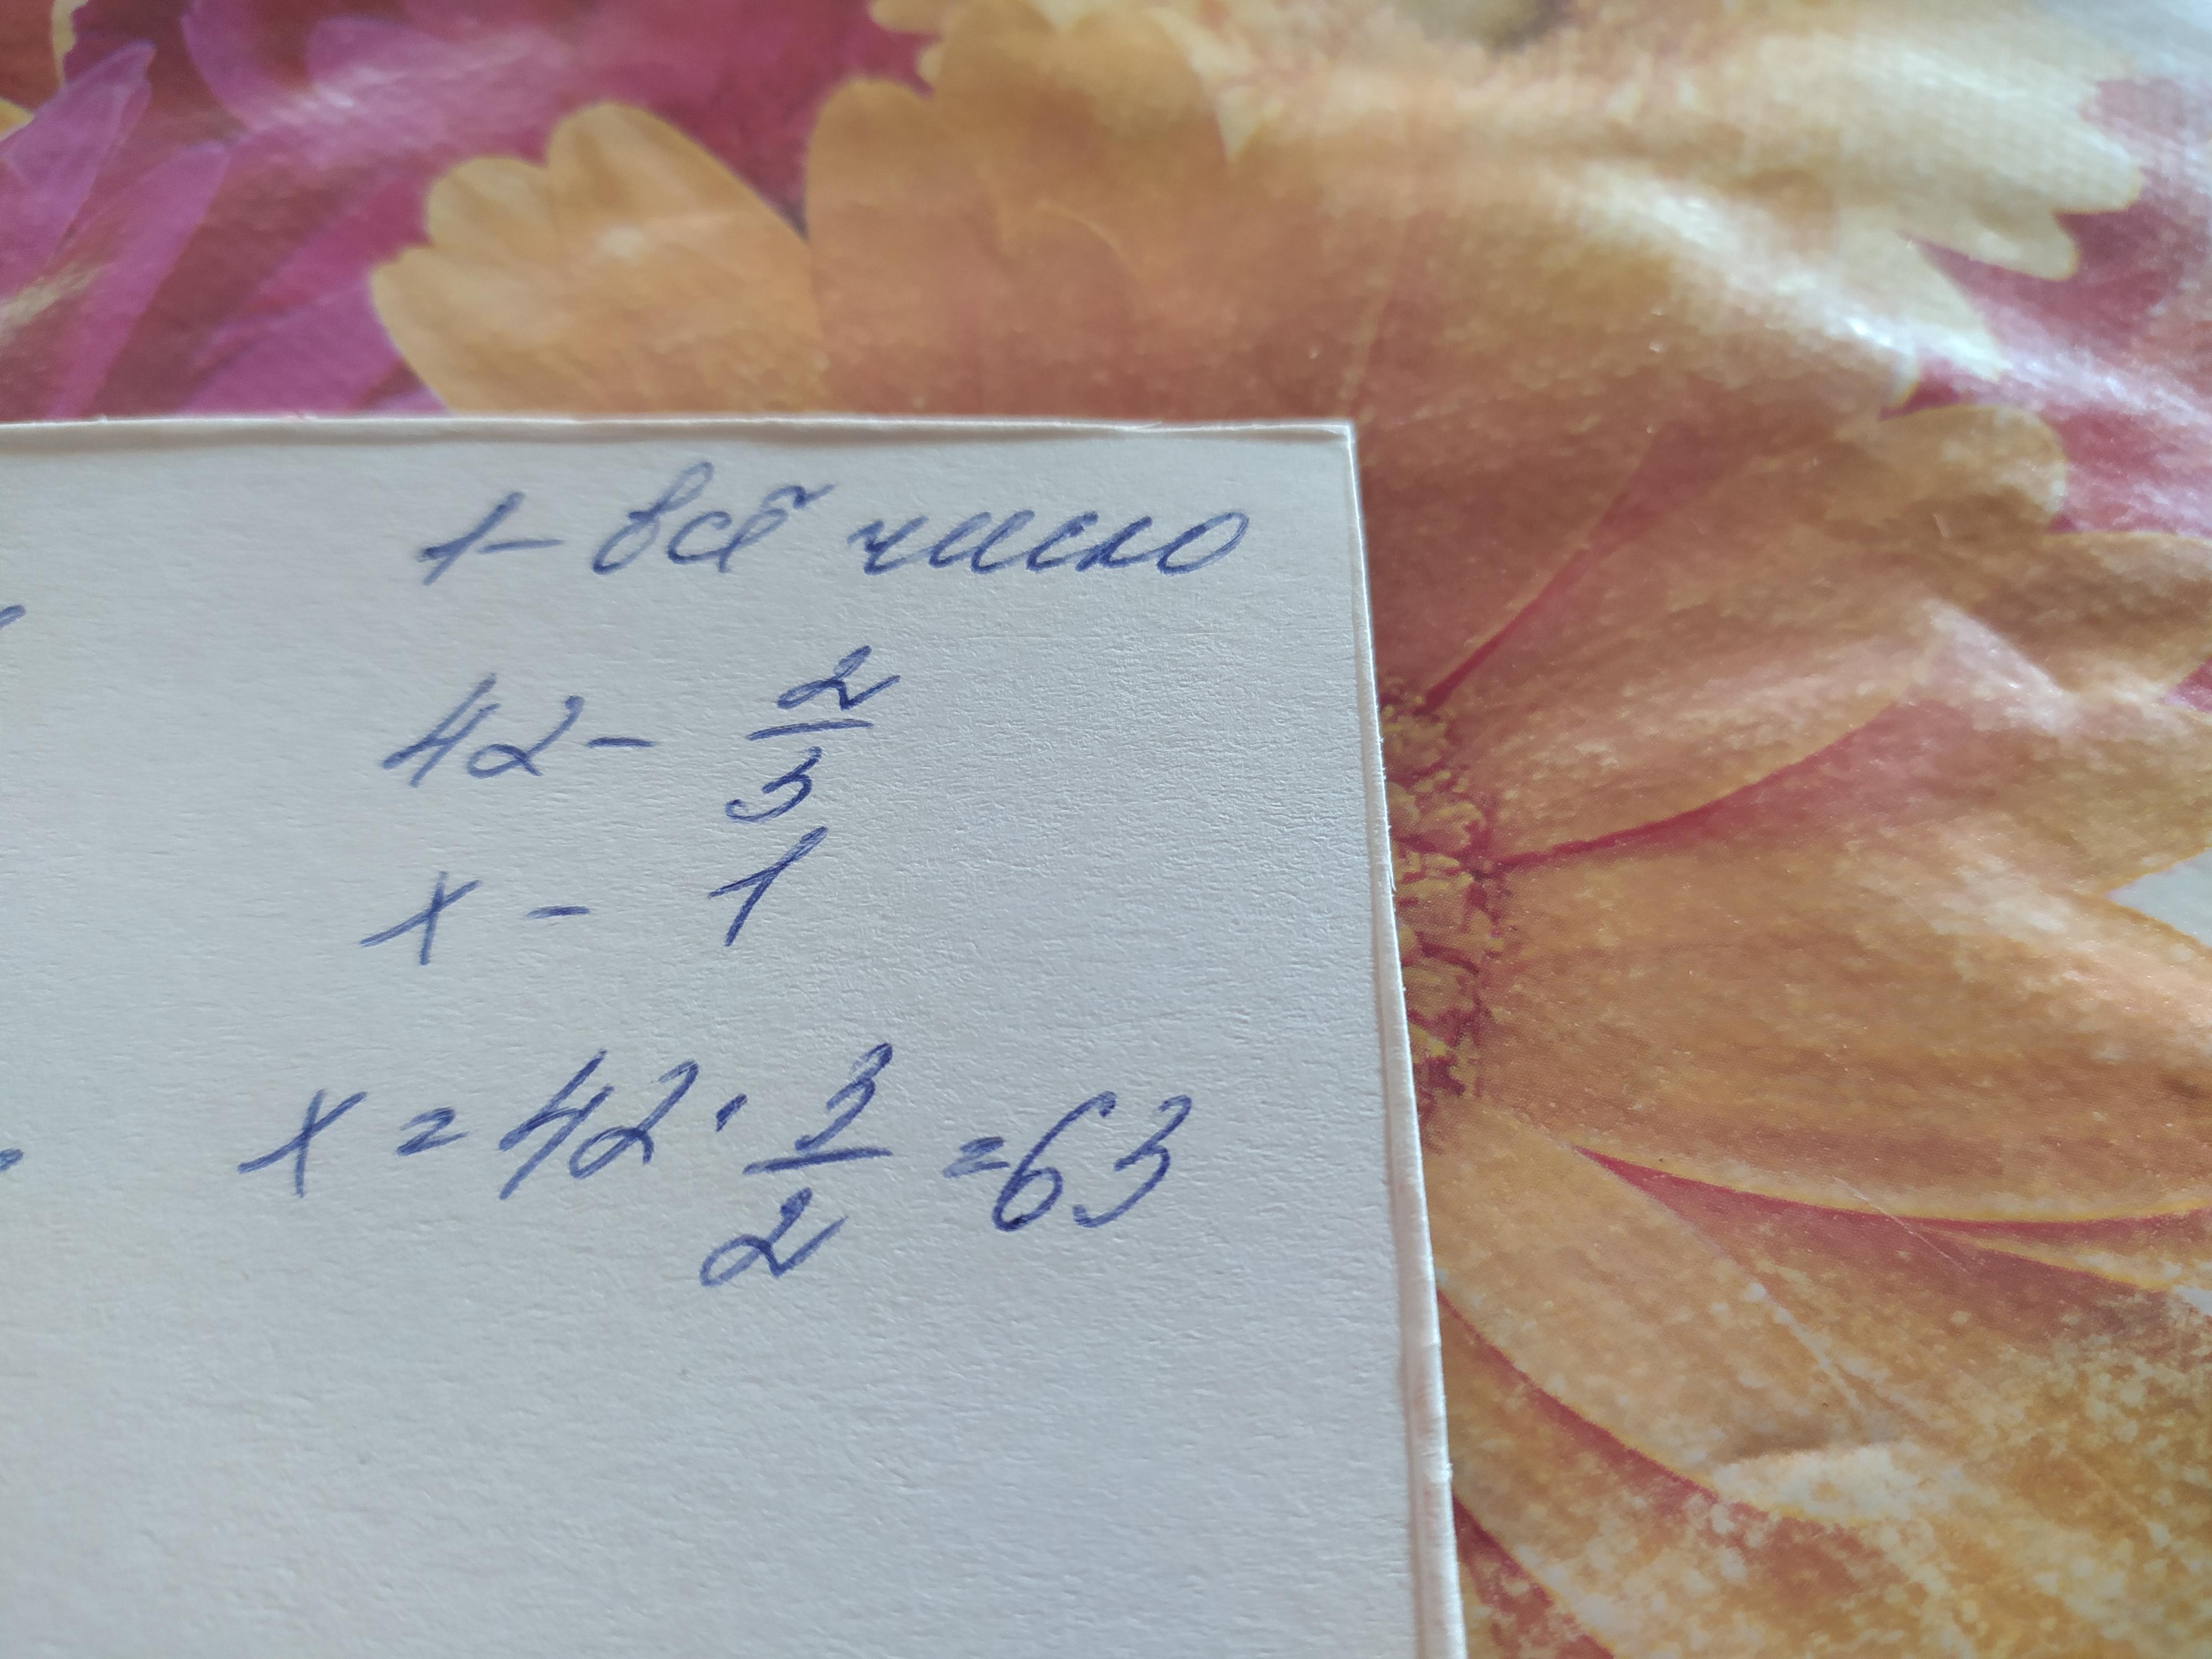 1 - всё число
42 - 2/3
x - 1
x = 42 · 3/2 = 63